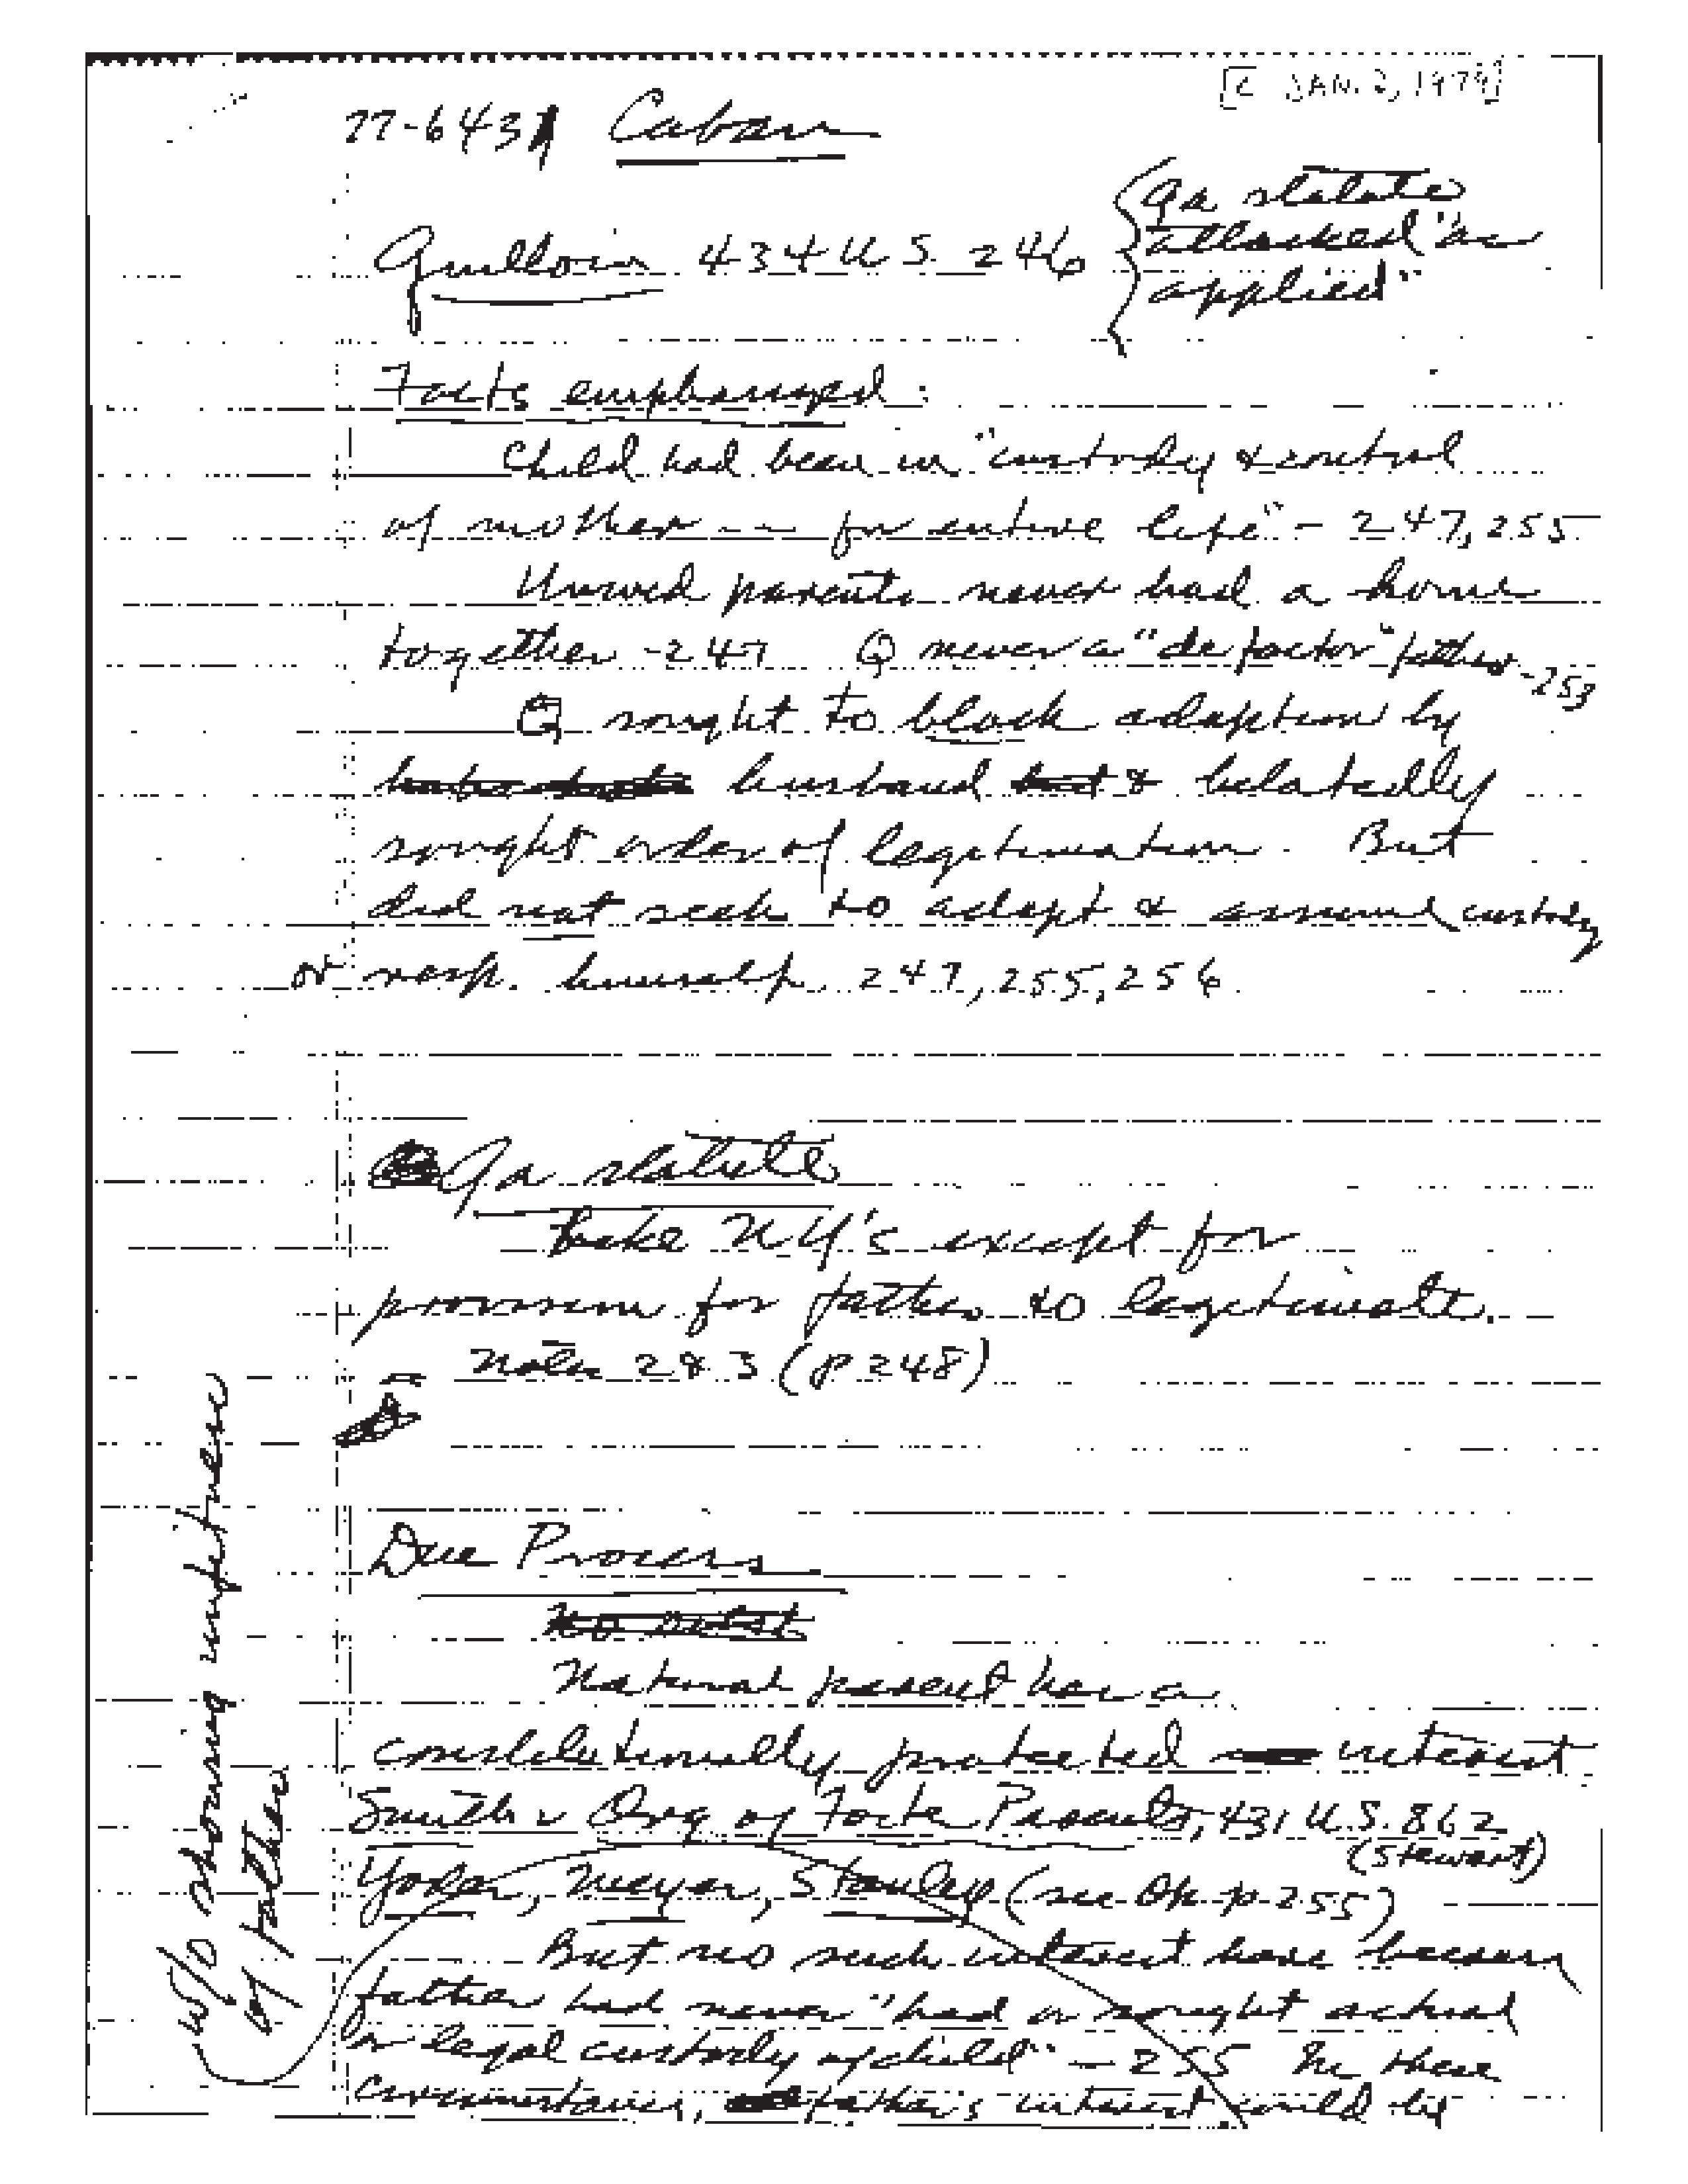 [c JAN. 2, 1979]
77-6431 Caban
Quilloin 434 U.S. 246
Ga statute
attacked "as
applied"
Facts emphasized:
Child had been in "custody & control
of mother -- for entire life" - 247, 255
Unwed parents never had a home
together - 247 Q never a "de facto" father - 253
Q sought to block adoption by
husband & belatedly
sought order of legitimation. But
did not seek to adopt & assume custody
or resp. himself. 247, 255, 256
Ga statute
Like NY's except for
provision for father to legitimate.
Notes 2 & 3 (p 248)
Due Process
No
Natural parent has a
constitutionally protected interest
Smith v Org of Foster Parents, 431 U.S. 862
(Stewart)
Yoder, Meyer, Stanley (see Op. p. 255)
But no such interest here because
father had never "had or sought actual
or legal custody of child" - 255 In these
circumstances, father's interest could be
w/o showing unfitness
of father